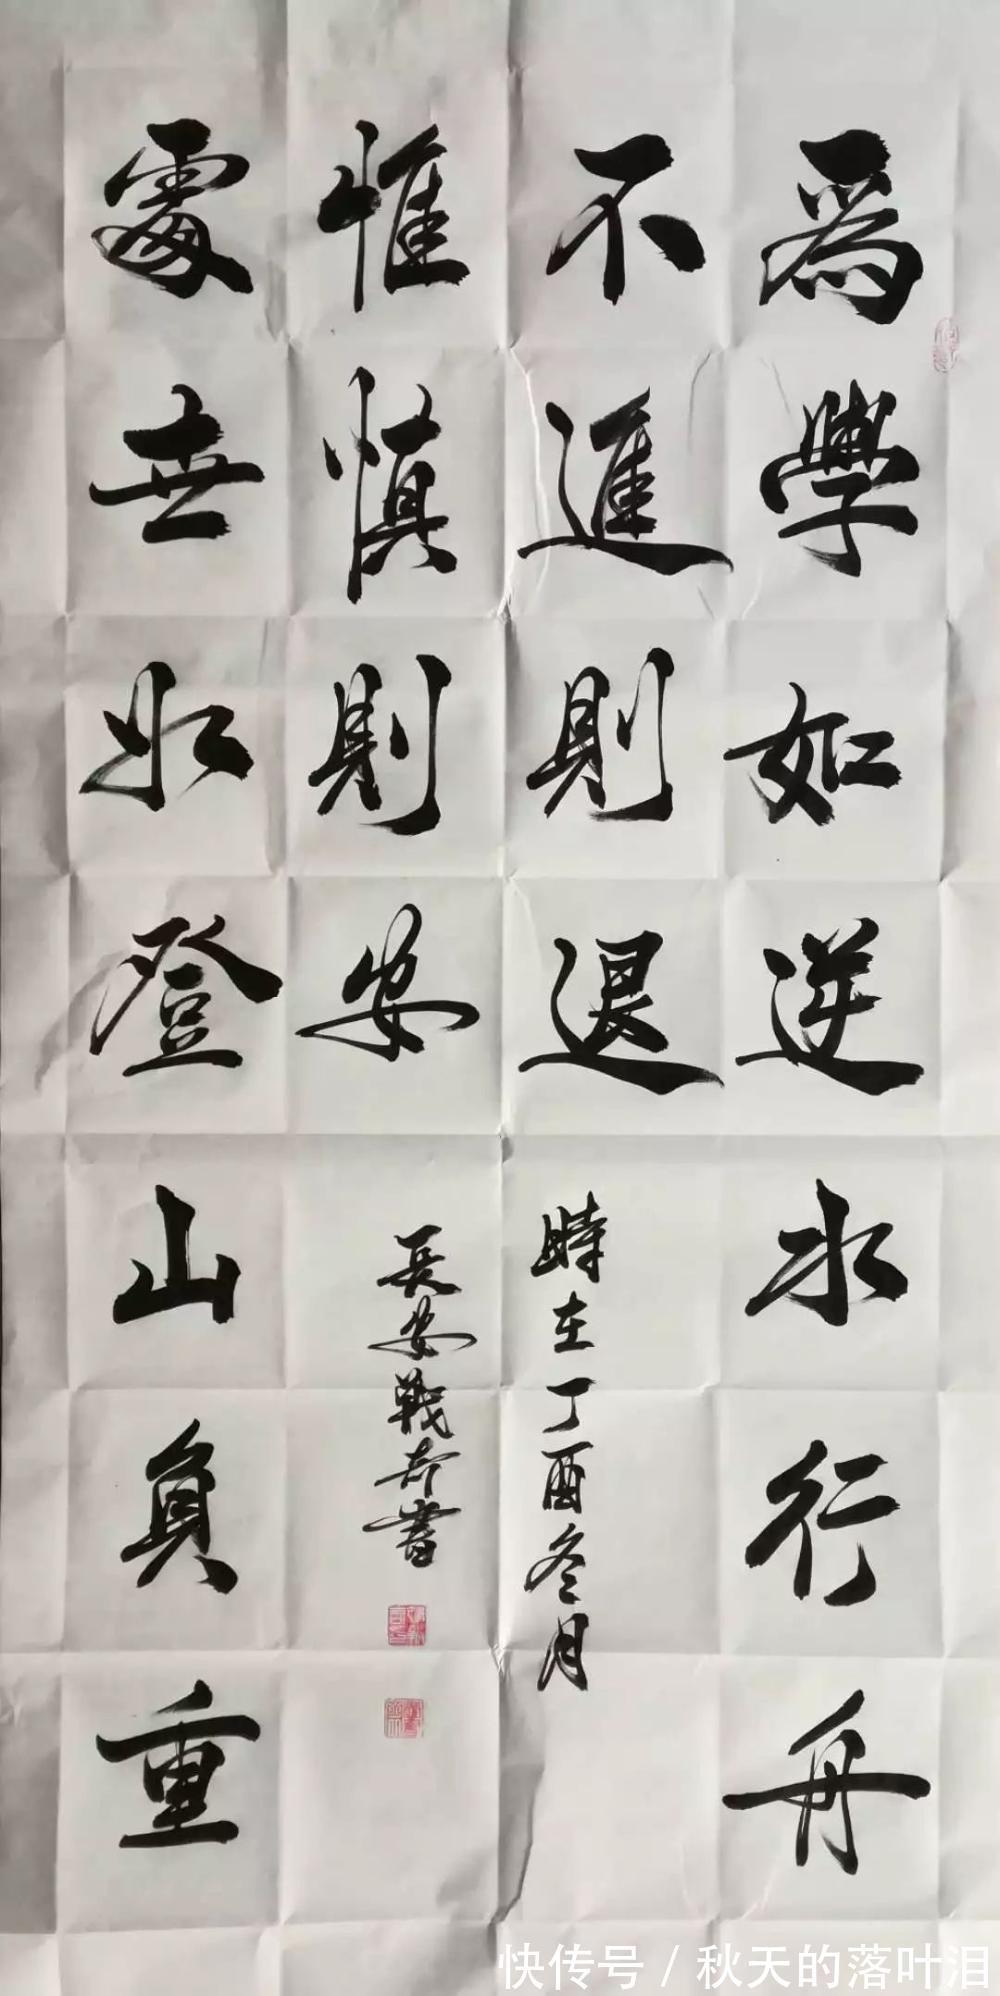 爲學如逆水行舟
不進則退
處世如登山負重
惟慎則安
時在丁酉冬月
長安戰奇書
快传号 / 秋天的落叶泪